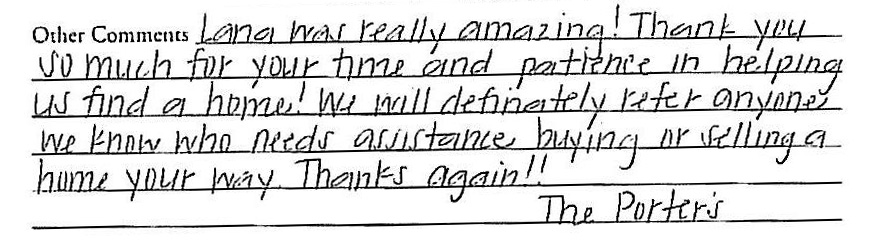 Other Comments Lana was really amazing! Thank you
so much for your time and patience in helping
us find a home! We will definately refer anyone
we know who needs assistance buying or selling a
home your way. Thanks again!!
The Porter's